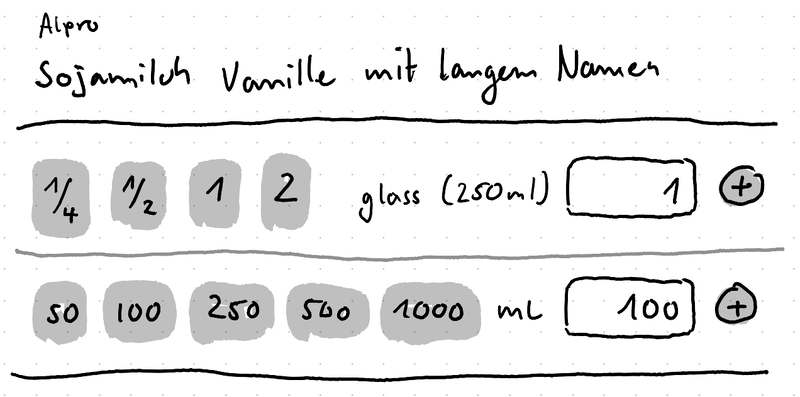 Alpro
Sojamilch Vanille mit langem Namen
1/4 1/2 1 2 glass (250ml) 1 +
50 100 250 500 1000 mL 100 +